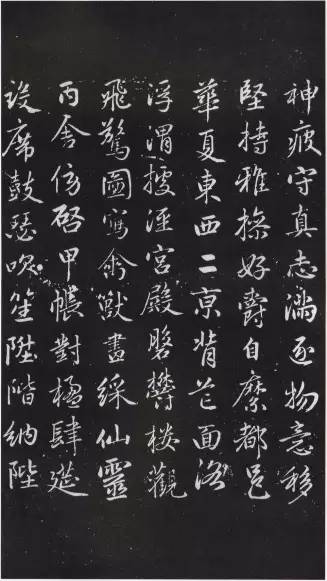 神疲守真志滿逐物意移
堅持雅操好爵自縻都邑
華夏東西二京背芒面洛
浮渭據涇宮殿盤欝樓觀
飛驚圖寫禽獸畫綵仙靈
丙舍傍啓甲帳對楹肆筵
設席鼓瑟吹笙陞階納陛